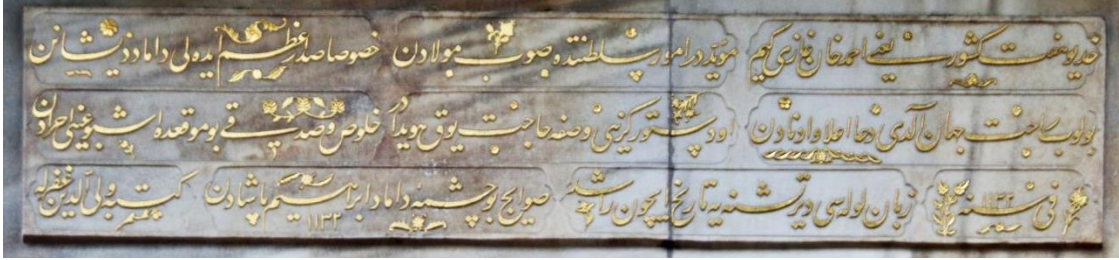 خدیو هفت کشور یعنی احمد خان غازی کیم مؤید در امور سلطنتده صوب مولادن خصوصا صدر اعظم ایده لی داماد ذیشانن
بولوب راحت جهان آلدی دعا اعلا و ادنادن او دستور گزینی وصفه حاجت یوق هویدادر خلوص و صدقی بو موقعده اشبو عینی اجرادن
فی سنه ١١٣٢ زبان لوله سی دیر تشنه یه تاریخ ایچون راشد صو ایچ بو چشمه داماد ابراهیم پاشادن ١١٣٢ کتبه ولی الدین غفر له